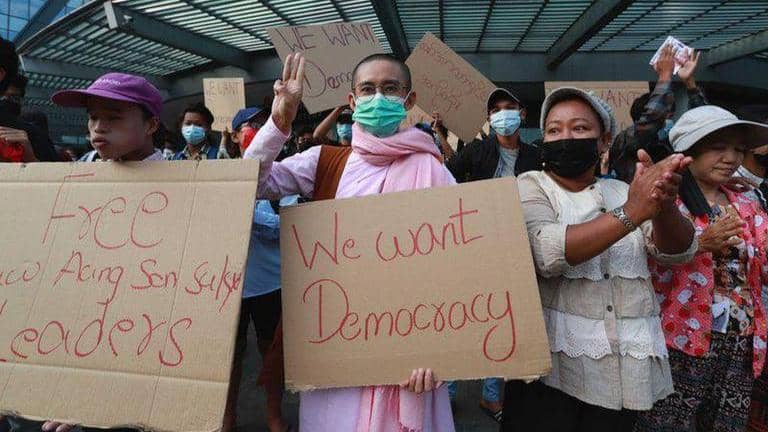 Free
Aung San Su Kyi
Leaders
We want
Democracy
WE WANT
Democ
WE WANT